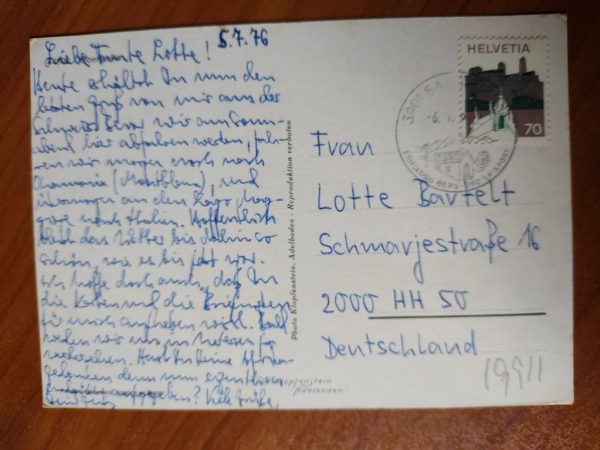 5.7.76
Liebe Tante Lotte!
Heute erhältst Du nun den
letzten Gruß von mir aus der
Schweiz. Bevor wir am Sonn-
abend hier abfahren werden, fah-
ren wir morgen noch nach
Chamonix (Montblanc), und
übermorgen an den Lago Mag-
giore nach Italien. Hoffentlich
bleibt das Wetter bis dahin so
schön, wie es bis jetzt war.
Ich hoffe doch auch, daß Du
die Karten und die Briefmarken
für mich aufheben wirst. Bald
werden wir uns ja
wiedersehen. Hast Du Deine
denn nun eigentlich
aufgegeben? Viele Grüße,
Photo Klopfenstein, Adelboden - Reproduktion verboten
Klopfenstein
Adelboden
HELVETIA
70
-6.
Frau
Lotte Bartelt
Schmarjestraße 16
2000 HH 50
Deutschland